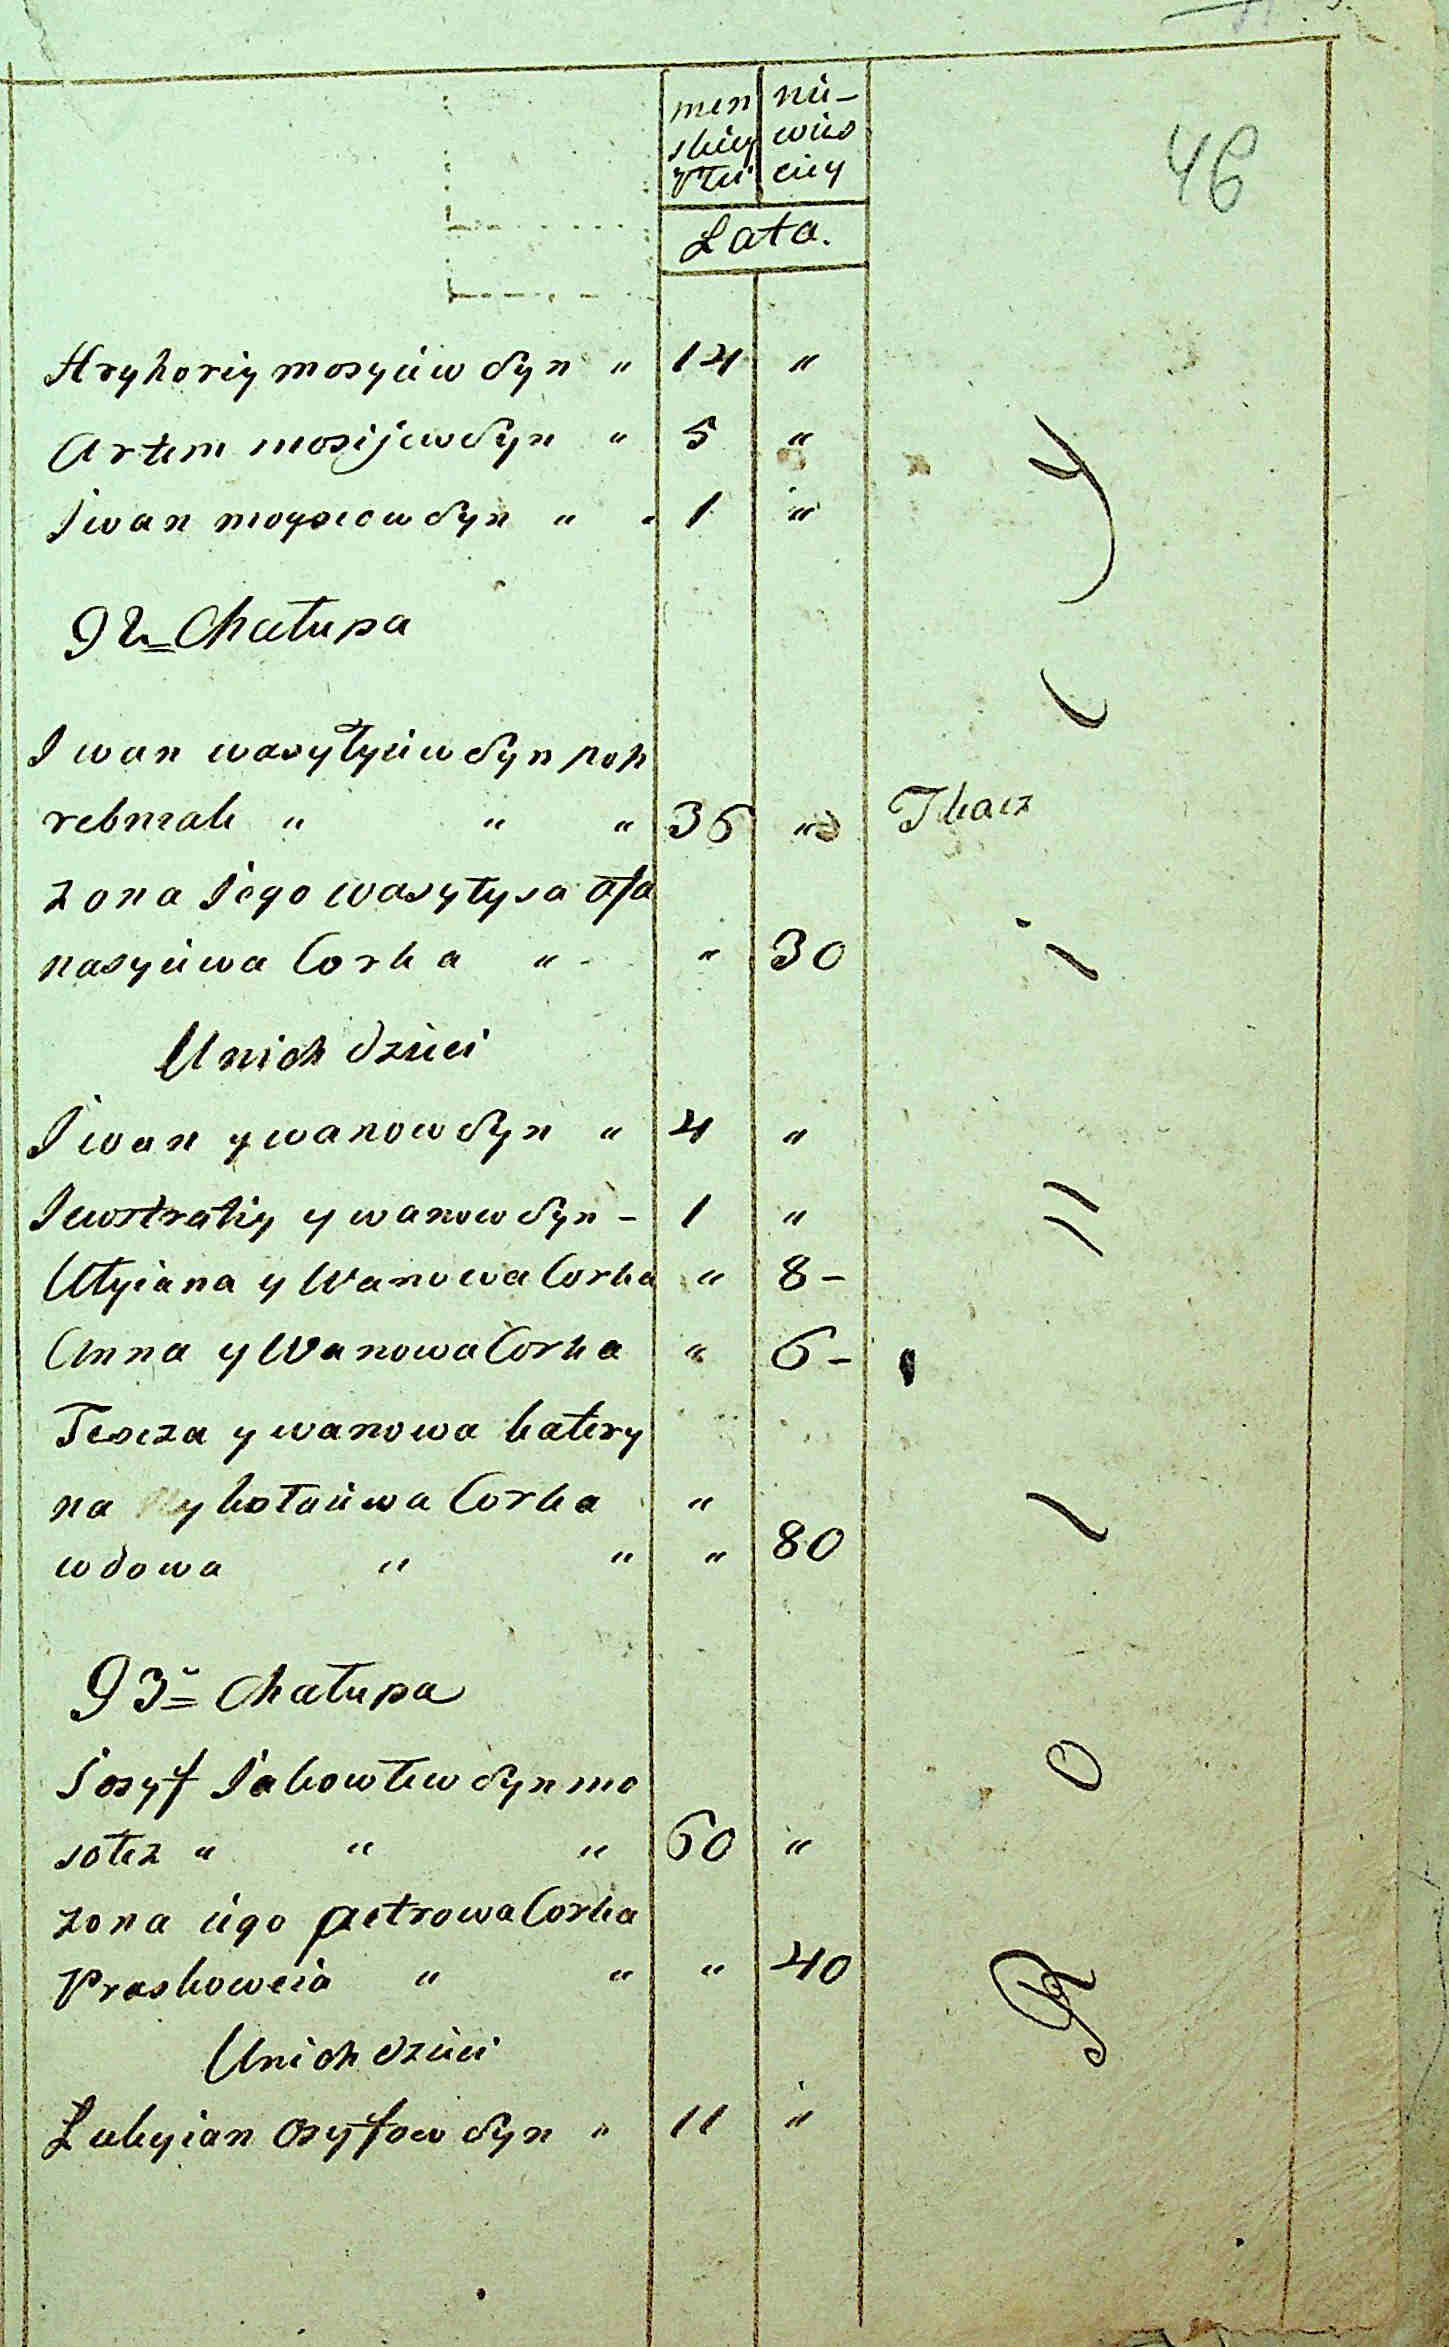 46
men niie-
skiey wies
Płci ciey
Lata.
Hryhoriy mosyiiw Syn " 14 "
Artem mosijew Syn " 5 "
Iwan moysiew Syn " " 1 "
92 Chałupa
Iwan wasyłyiiw Syn poh
rebniak " " " 36 " Tkacz
zona Iego wasyłysa Afa
nasyiiwa Corka " " 30
Unich dzieci
Iwan ywanow Syn " 4 "
Iewstratiy ywanow Syn - 1 "
Ulyiana yWanowa Corka " 8 -
Anna yWanowa Corka " 6 -
Tescza ywanowa katery
na Mykołaiiwa Corka "
wdowa " " " 80
93 Chałupa
Iosyf Iakowlew Syn mo
solez " " " 60 "
zona iego petrowa Corka
Praskoweia " " " 40
Unich dzieci
Łukyian Osyfow Syn " 11 "